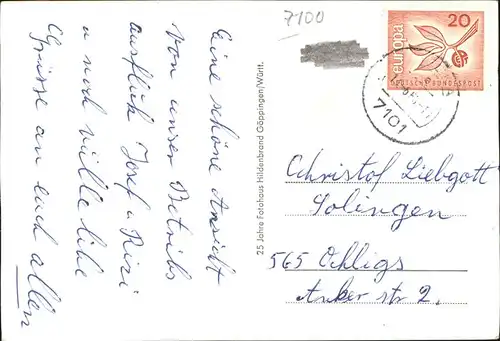 7100
Eine schöne Ansicht
von unser Betriebs
ausflück Josef u Resi
u noch vielle libe
Grüsse an euch allen
25 Jahre Fotohaus Hildenbrand Göppingen/Württ.
europa
20
DEUTSCHE BUNDESPOST
7101
Christof Liebgott
Solingen
565 Ohligs
Anker str 2.